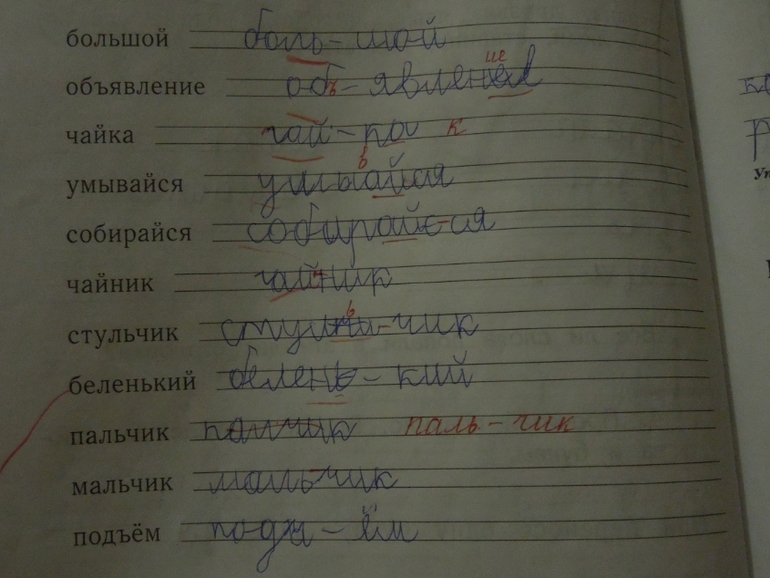 большой боль-шой
объявление объ-явлене ие
чайка чай-ка к
умывайся умывайся в
собирайся собирайся-ся
чайник чайник
стульчик стуль-чик ь
беленький белень-кий
пальчик палчик паль-чик
мальчик мальчик
подъём подъ-ём
ко
р
Уп